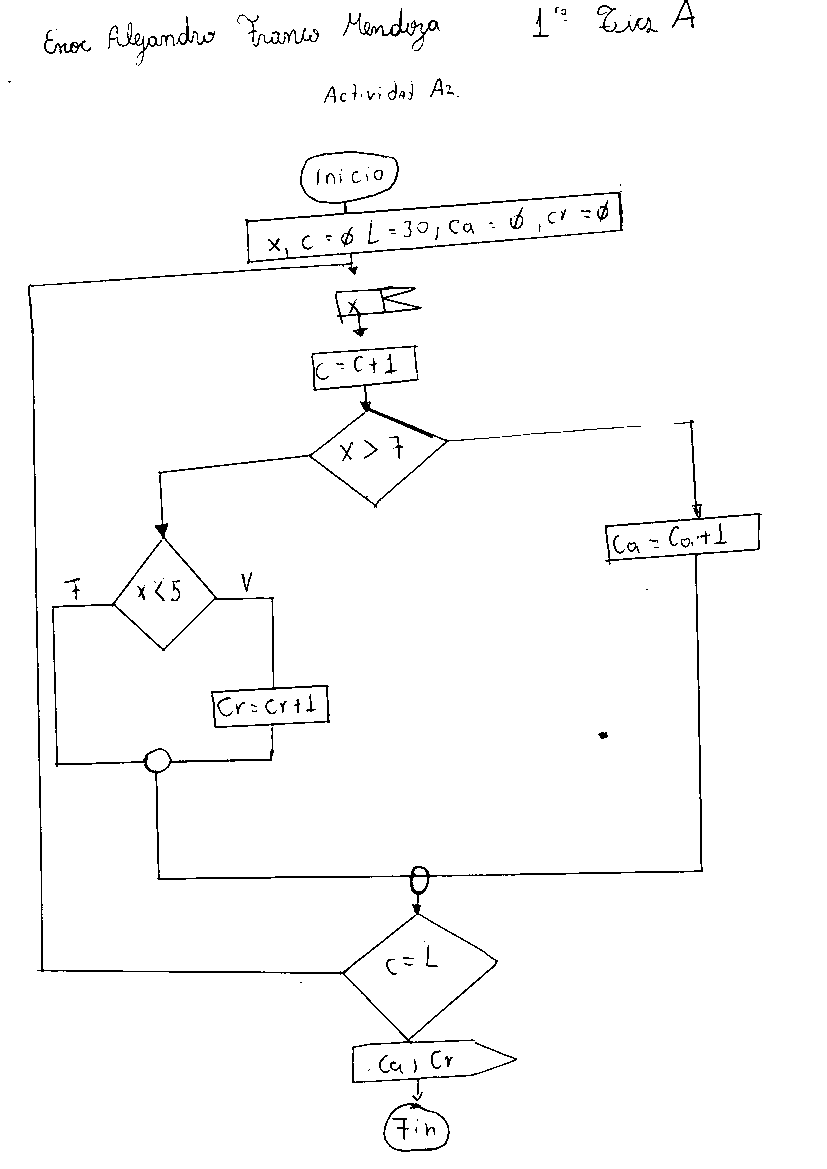 Enoc Alejandro Franco Mendoza 1ro Tics A
Actividad A2.
Inicio
x, C = ø L = 30, Ca = ø, cr = ø
x
C = C+1
x > 7
Ca = Ca+1
x < 5
F V
Cr = Cr+1
C = L
Ca, Cr
Fin